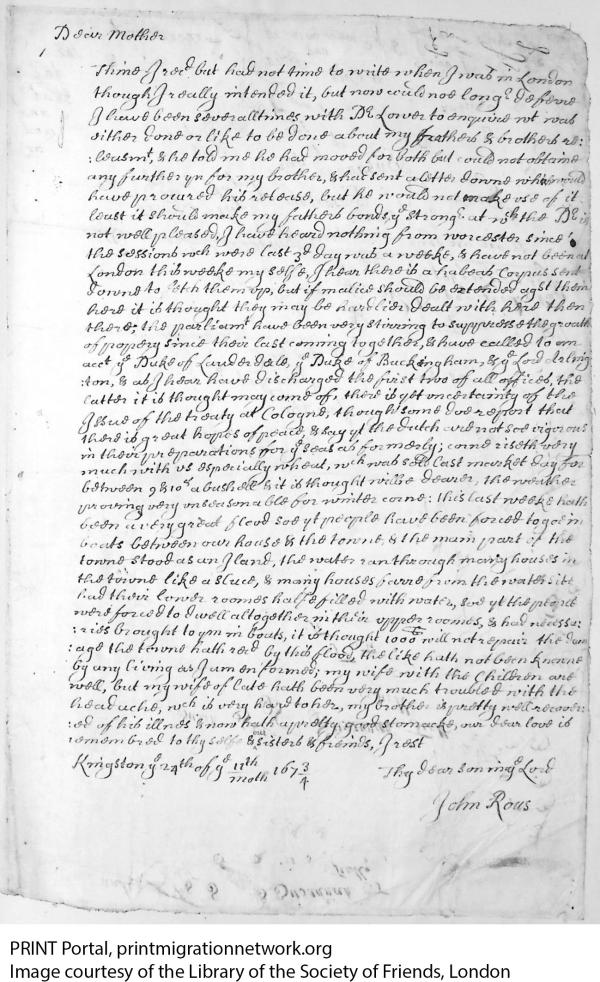 Dear Mother
Thine I recd but had not time to write when I was in London
though I really intended it, but now could not longr deferre
I have been severall times with Dr Lower to enquire wt was
either done or like to be done about my fathers & brothers re:
:leasmt, & he told me he had moved for both but could not obtaine
any further yn for my brother, & had sent a letter downe which would
have procured his release, but he would not make use of it
least it should make my fathers bonds ye strongr at wch the Dr is
not well pleased, I have heard nothing from worcester since
the sessions wch were last 3d day was a weeke, & have not been at
London this weeke my selfe, I hear there is a habeas Corpus sent
downe to fetch them up, but if malice should be extended agst them
here it is thought they may be hardlier dealt with here then
there; the parliamt have been very stirring to suppresse the growth
of popery since their last coming together, & have called to an
acct ye Duke of Lauderdale, ye Duke of Buckingham, & ye Lord Arling
:ton, & as I hear have discharged the first two of all offices, the
latter it is thought may come off, there is yet uncertainty of the
Issue of the treaty at Cologne, though some doe report that
there is great hopes of peace, & say yt the dutch are not soe vigorous
in their preparations for ye seas as formerly; corne riseth very
much with us especially wheat, wch was sold last market day for
between 9 & 10s a bushell & it is thought will be dearer, the weather
proving very unseasonable for winter corne: this last weeke hath
been a very great flood soe yt people have been forced to goe in
boats between our house & the towne, & the main part of the
towne stood as an Iland, the water ran through many houses in
the towne like a sluce, & many houses farre from the water site
had their lower roomes halfe filled with water, soe yt the people
were forced to dwell altogether in their upper roomes, & had necessa:
:ries brought to ym in boats, it is thought 1000li will not repair the dam
:age the towne hath recd by this flood, the like hath not been knowne
by any living as I am enformed; my wife with the Children are
well, but my wife of late hath been very much troubled with the
head ache, wch is very hard to her, my brother is pretty well recover:
:ed of his illnes & now hath a pretty good stomacke, our dear love is
remembred to thy selfe & our sisters & friends, I rest
Kingston ye 24th of ye 11th moth 1673/4
Thy dear son in ye Lord
John Rous
PRINT Portal, printmigrationnetwork.org
Image courtesy of the Library of the Society of Friends, London